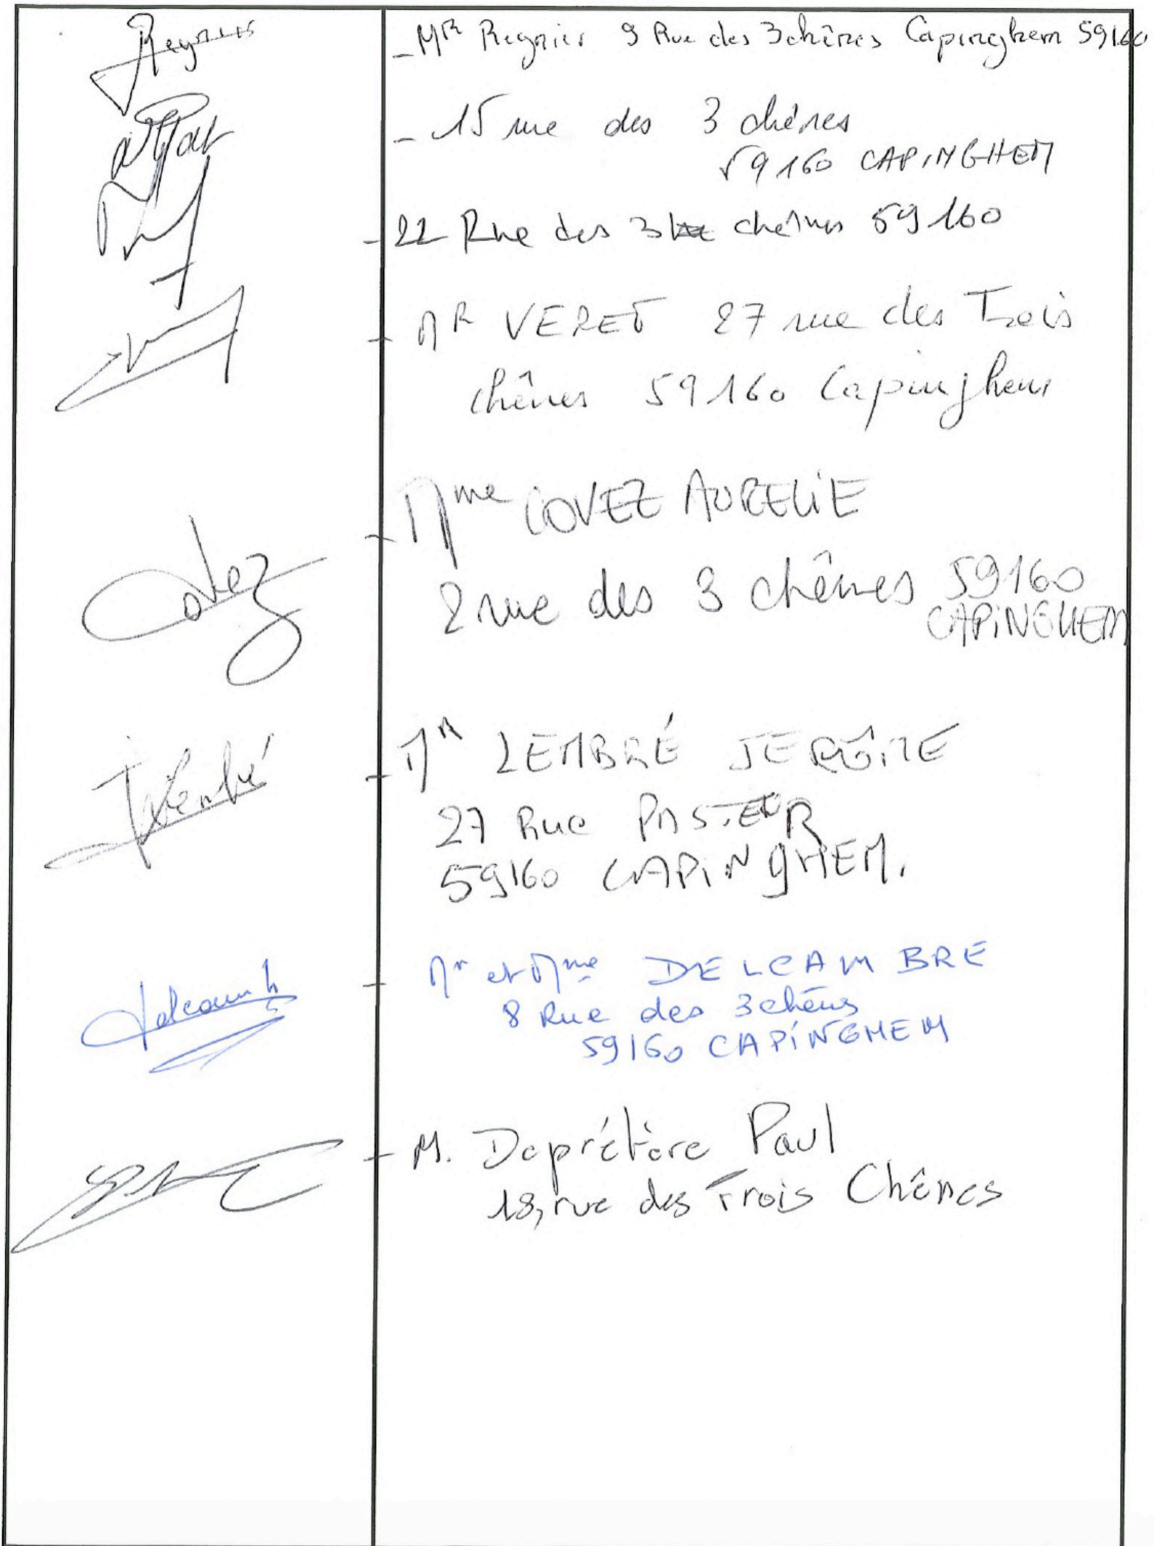 Regnier
- MR Regnier 9 Rue des 3 chênes Capinghem 59160
- 15 rue des 3 chênes
59160 CAPINGHEM
- 22 Rue des 3 chênes 59160
- MR VERET 27 rue des Trois
chênes 59160 Capinghem
- Mme COVEZ AURELIE
2 rue des 3 chênes 59160
CAPINGHEM
Covez
- MR LEMBRÉ JEROME
27 Rue PASTEUR
59160 CAPINGHEM.
Lembré
- Mr et Mme DELCAMBRE
8 Rue des 3 chênes
59160 CAPINGHEM
Delcambre
- M. Deprétère Paul
18, rue des Trois Chênes